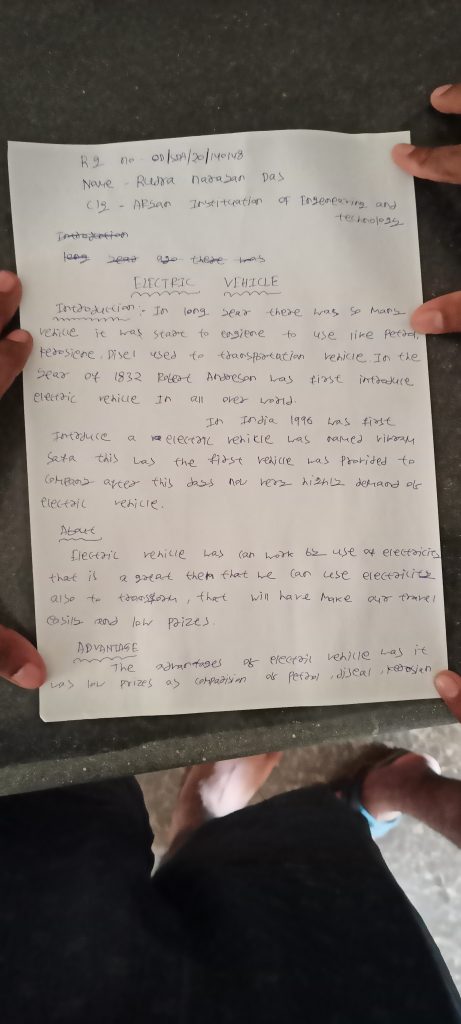 Rg no - OD/SDA/20/140148
Name - Rudra narayan Das
Clg - Aryan Institution of Engeneering and
technology
Introdution
long year ago there was
ELECTRIC VEHICLE
Introduction :- In long year there was so many
vehicle it was start to engiene to use like Petrol,
kerosiene, Disel used to transportation vehicle. In the
year of 1832 Robert Anderson was first introduce
electric vehicle in all over world.
In India 1996 was first
Introduce a electric vehicle was named vikram
Safa this was the first vehicle was provided to
company after this days now very highly demand of
electric vehicle.
About
Electric vehicle was can work by use of electricity
that is a great them that we can use electricity
also to transform, that will have make our travel
easily and low prizes.
ADVANTAGE
The advantages of electric vehicle was it
was low prizes as comparision of Petrol, diseal, kerosian